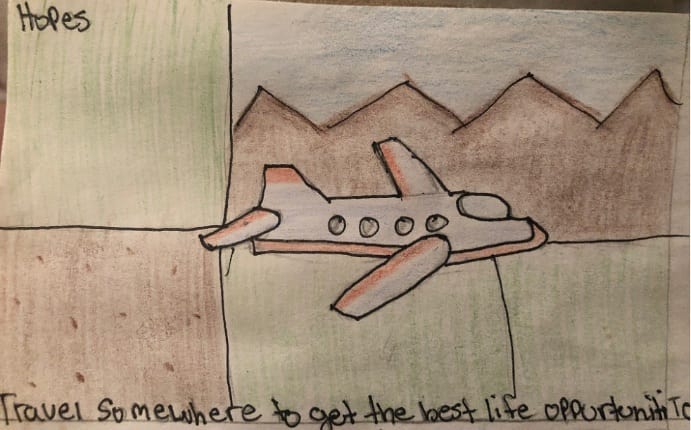 Hopes
Travel somewhere to get the best life oppurtuniti